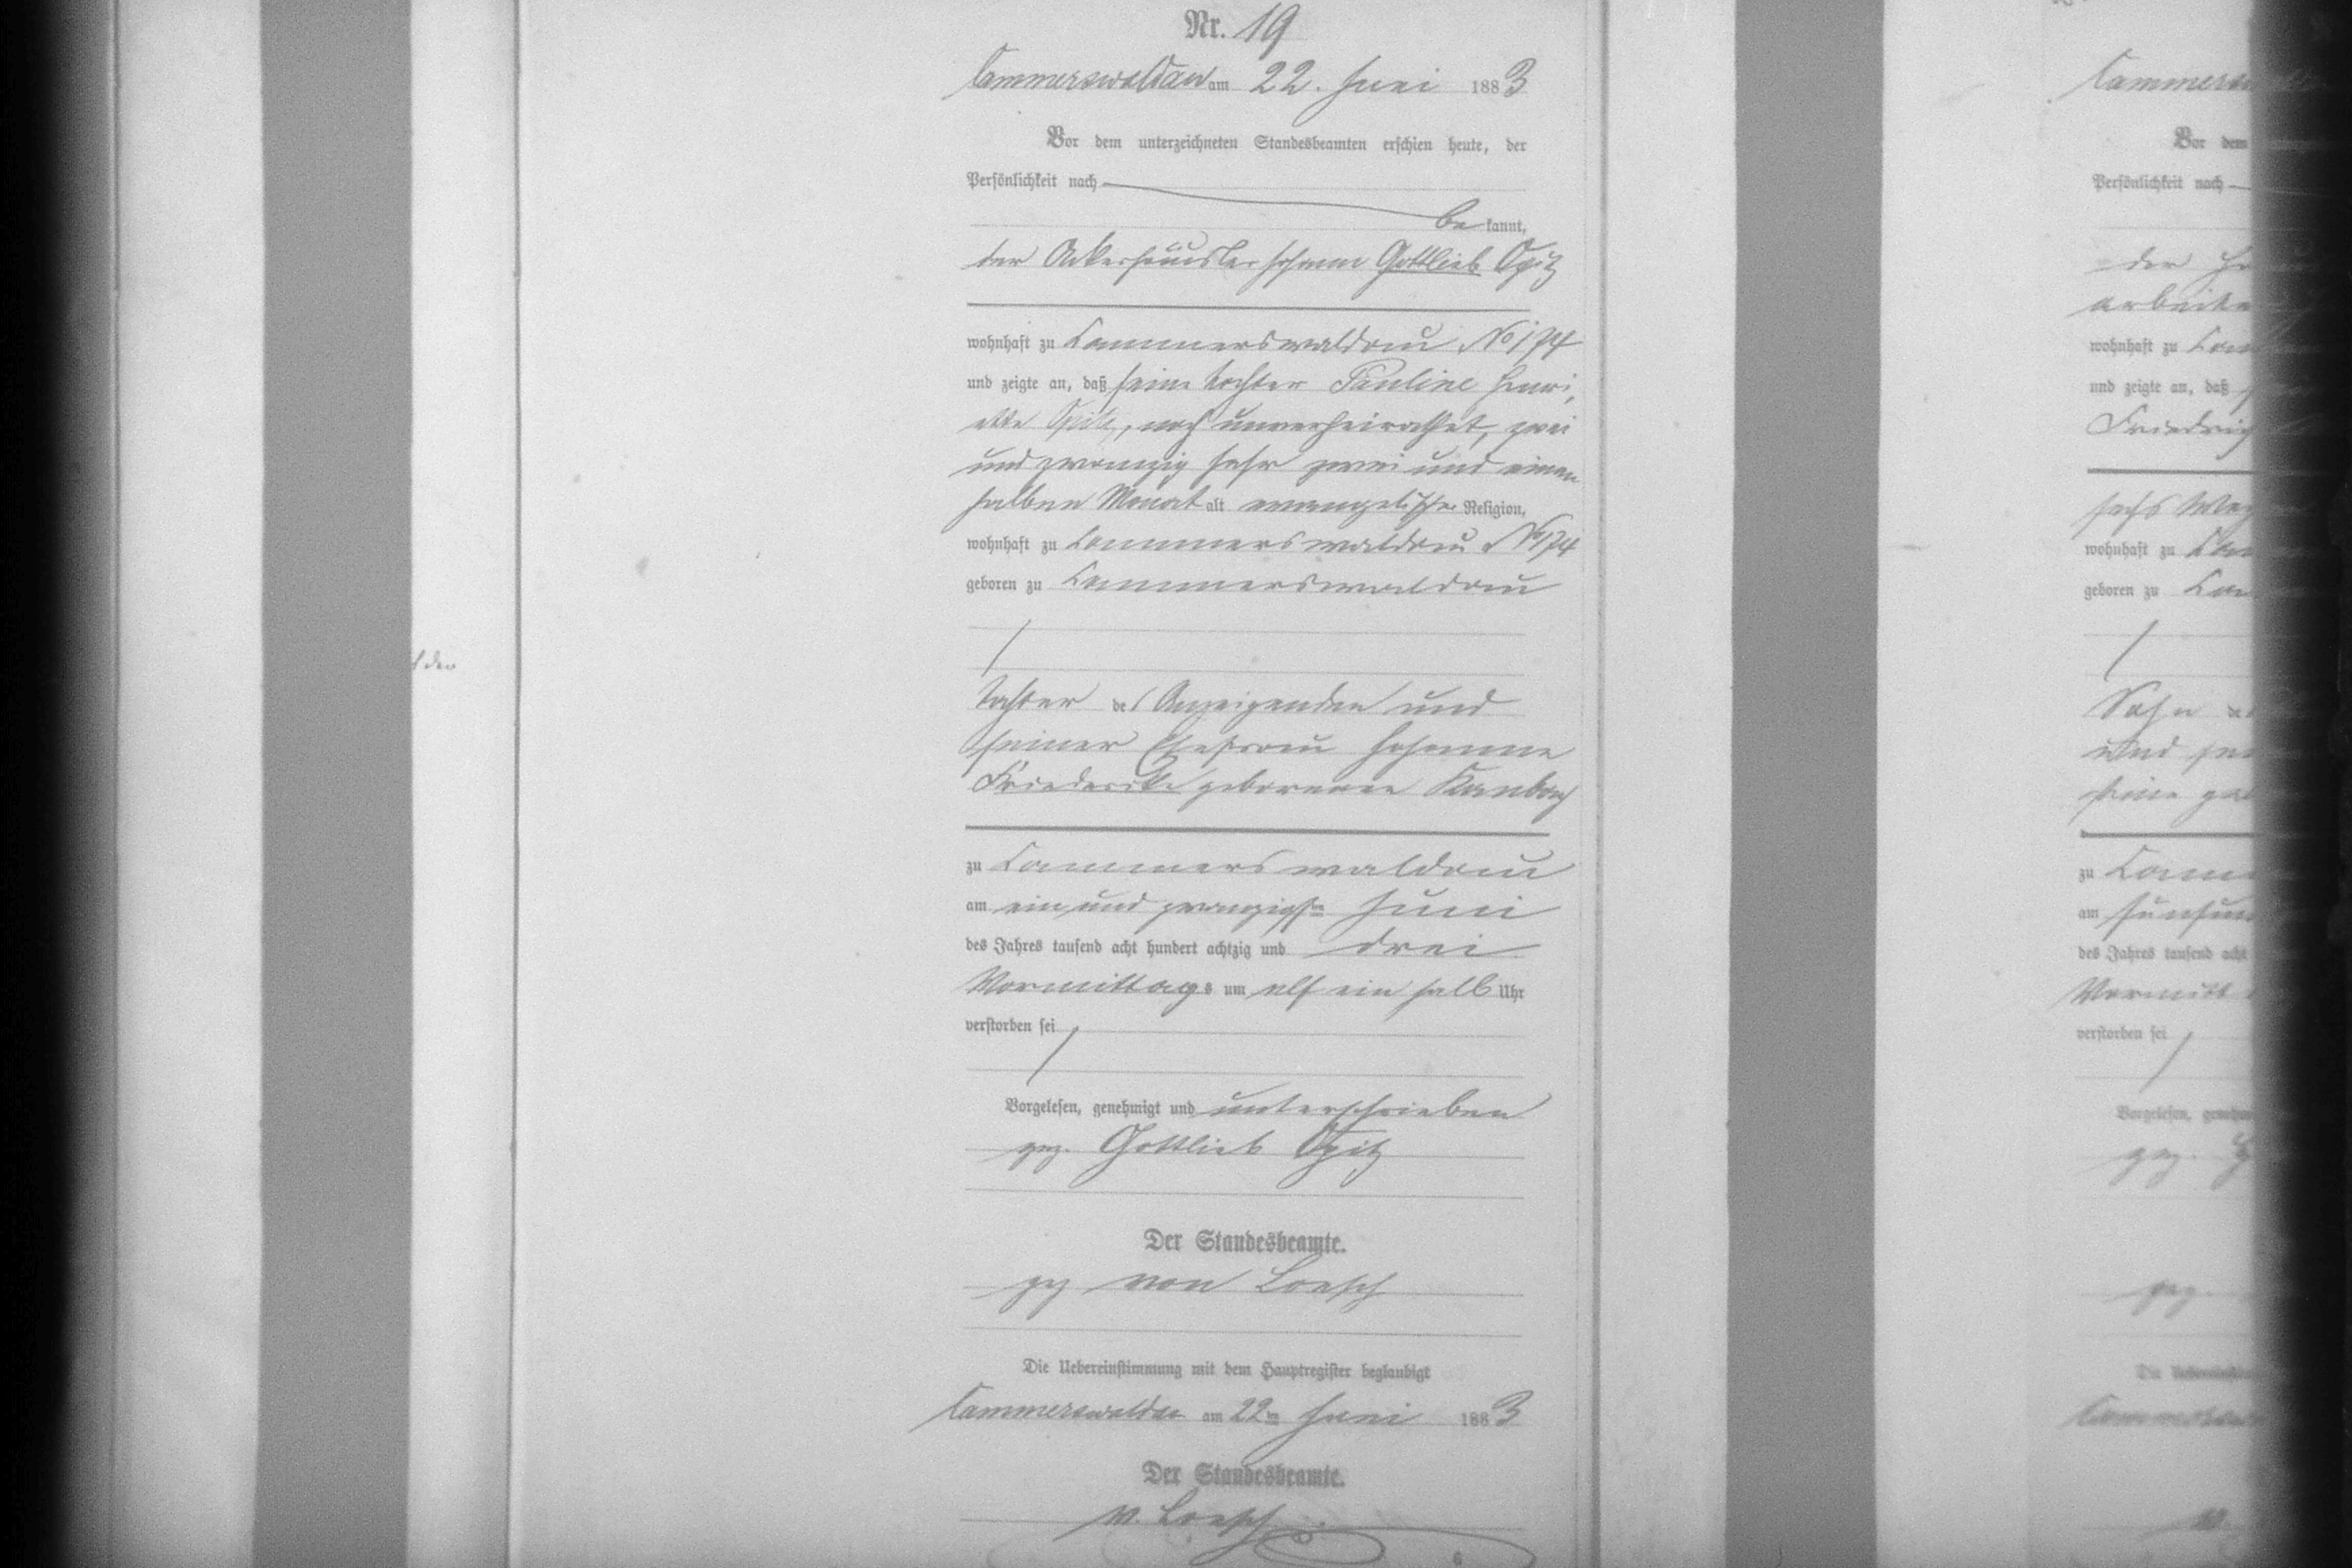 Nr. 19
Cammerswaldau am 22. Juni 1883
Vor dem unterzeichneten Standesbeamten erschien heute, der
Persönlichkeit nach
bekannt,
der Ackerhäusler Johann Gottlieb Opitz
wohnhaft zu Cammerswaldau No 174
und zeigte an, daß seine Tochter Pauline Henri,
ette Opitz, noch unverheirathet, zwei
und zwanzig Jahr zwei und einen
halben Monat alt evangelischer Religion,
wohnhaft zu Cammerswaldau No 174
geboren zu Cammerswaldau
Tochter des Anzeigenden und
seiner Ehefrau Johanne
Friederike geborenen Kambach
zu Cammerswaldau
am ein und zwanzigsten Juni
des Jahres tausend acht hundert achtzig und drei
Vormittags um elf ein halb Uhr
verstorben sei
Vorgelesen, genehmigt und unterschrieben
gez. Gottlieb Opitz
Der Standesbeamte.
gez von Loesch
Die Uebereinstimmung mit dem Hauptregister beglaubigt
Cammerswaldau am 22ten Juni 1883
Der Standesbeamte.
v. Loesch
Vor dem
Persönlichkeit nach
der
wohnhaft zu
und zeigte an, daß
sechs
wohnhaft zu
geboren zu
Sohn des
und
zu
am
des Jahres tausend acht
Vormitt
verstorben sei
Vorgelesen,
gez.
gez.